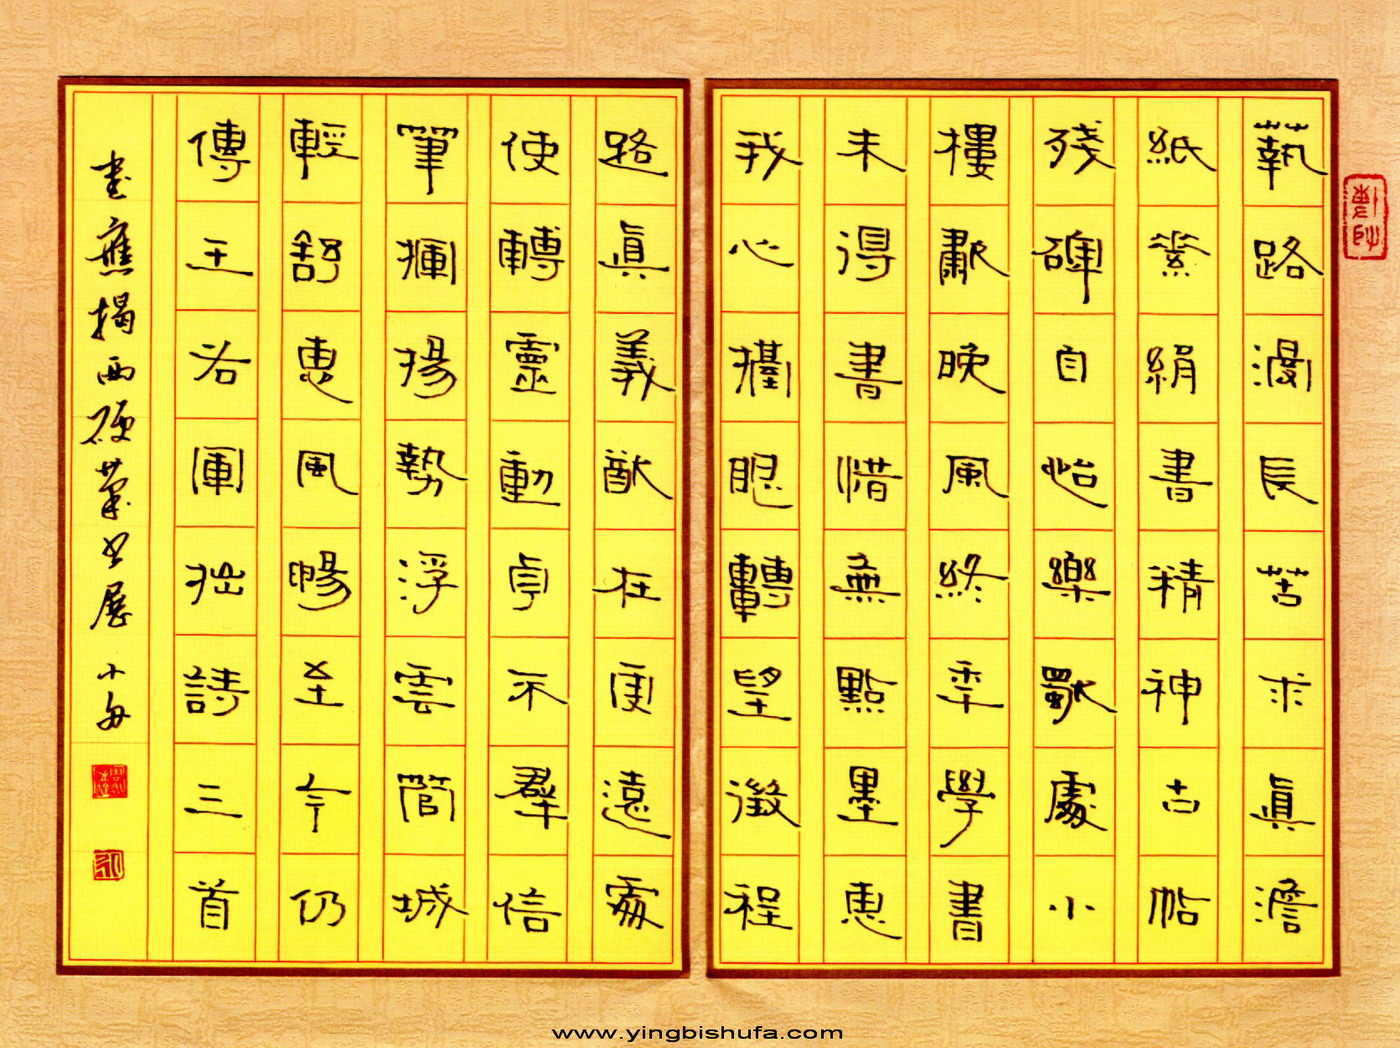 藝路漫長苦求眞澹
紙縈絹書精神古帖
殘碑自怡樂歇處小
樓肅晚風終年學書
未得書惜無點墨惠
我心擡眼轉望徵程
路眞義猷在更遠處
使轉靈動貞不羣信
筆揮揚勢浮雲管城
輕舒惠風暢至今仍
傳王右軍拙詩三首
書應揭西硬筆書展
www.yingbishufa.com